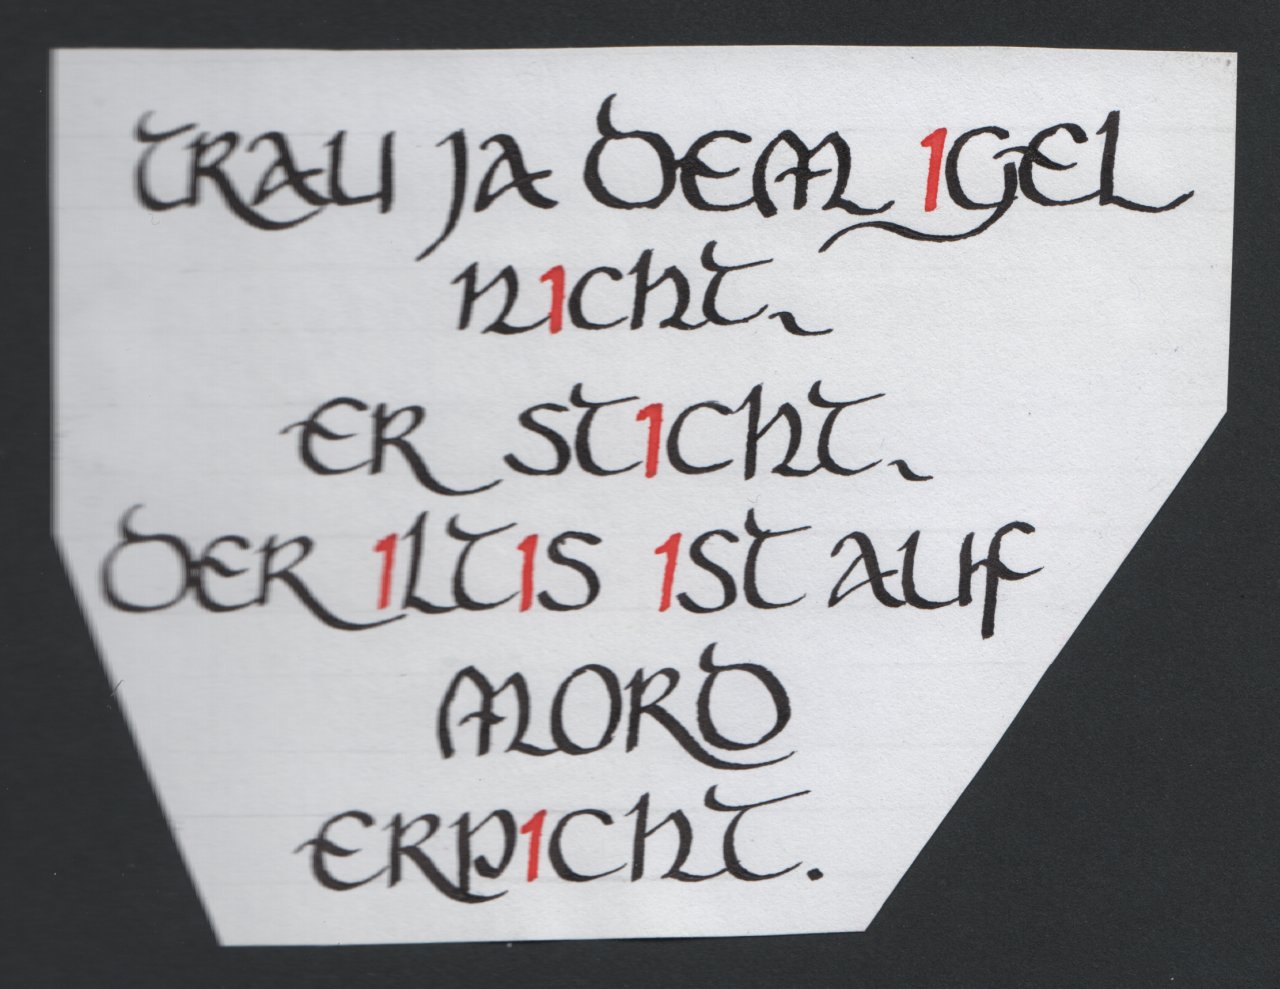 TRAU JA DEM IGEL
NICHT,
ER STICHT,
DER ILTIS IST AUF
MORD
ERPICHT.